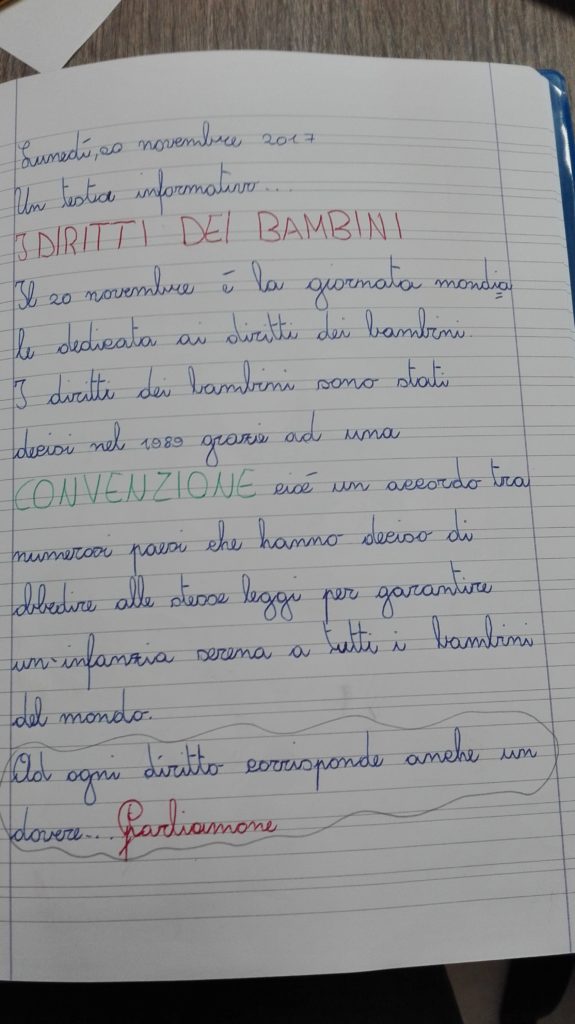 Lunedì, 20 novembre 2017
Un testo informativo...
I DIRITTI DEI BAMBINI
Il 20 novembre è la giornata mondia
le dedicata ai diritti dei bambini.
I diritti dei bambini sono stati
decisi nel 1989 grazie ad una
CONVENZIONE cioé un accordo tra
numerosi paesi che hanno deciso di
obbedire alle stesse leggi per garantire
un'infanzia serena a tutti i bambini
del mondo.
Ad ogni diritto corrisponde anche un
dovere... Parliamone